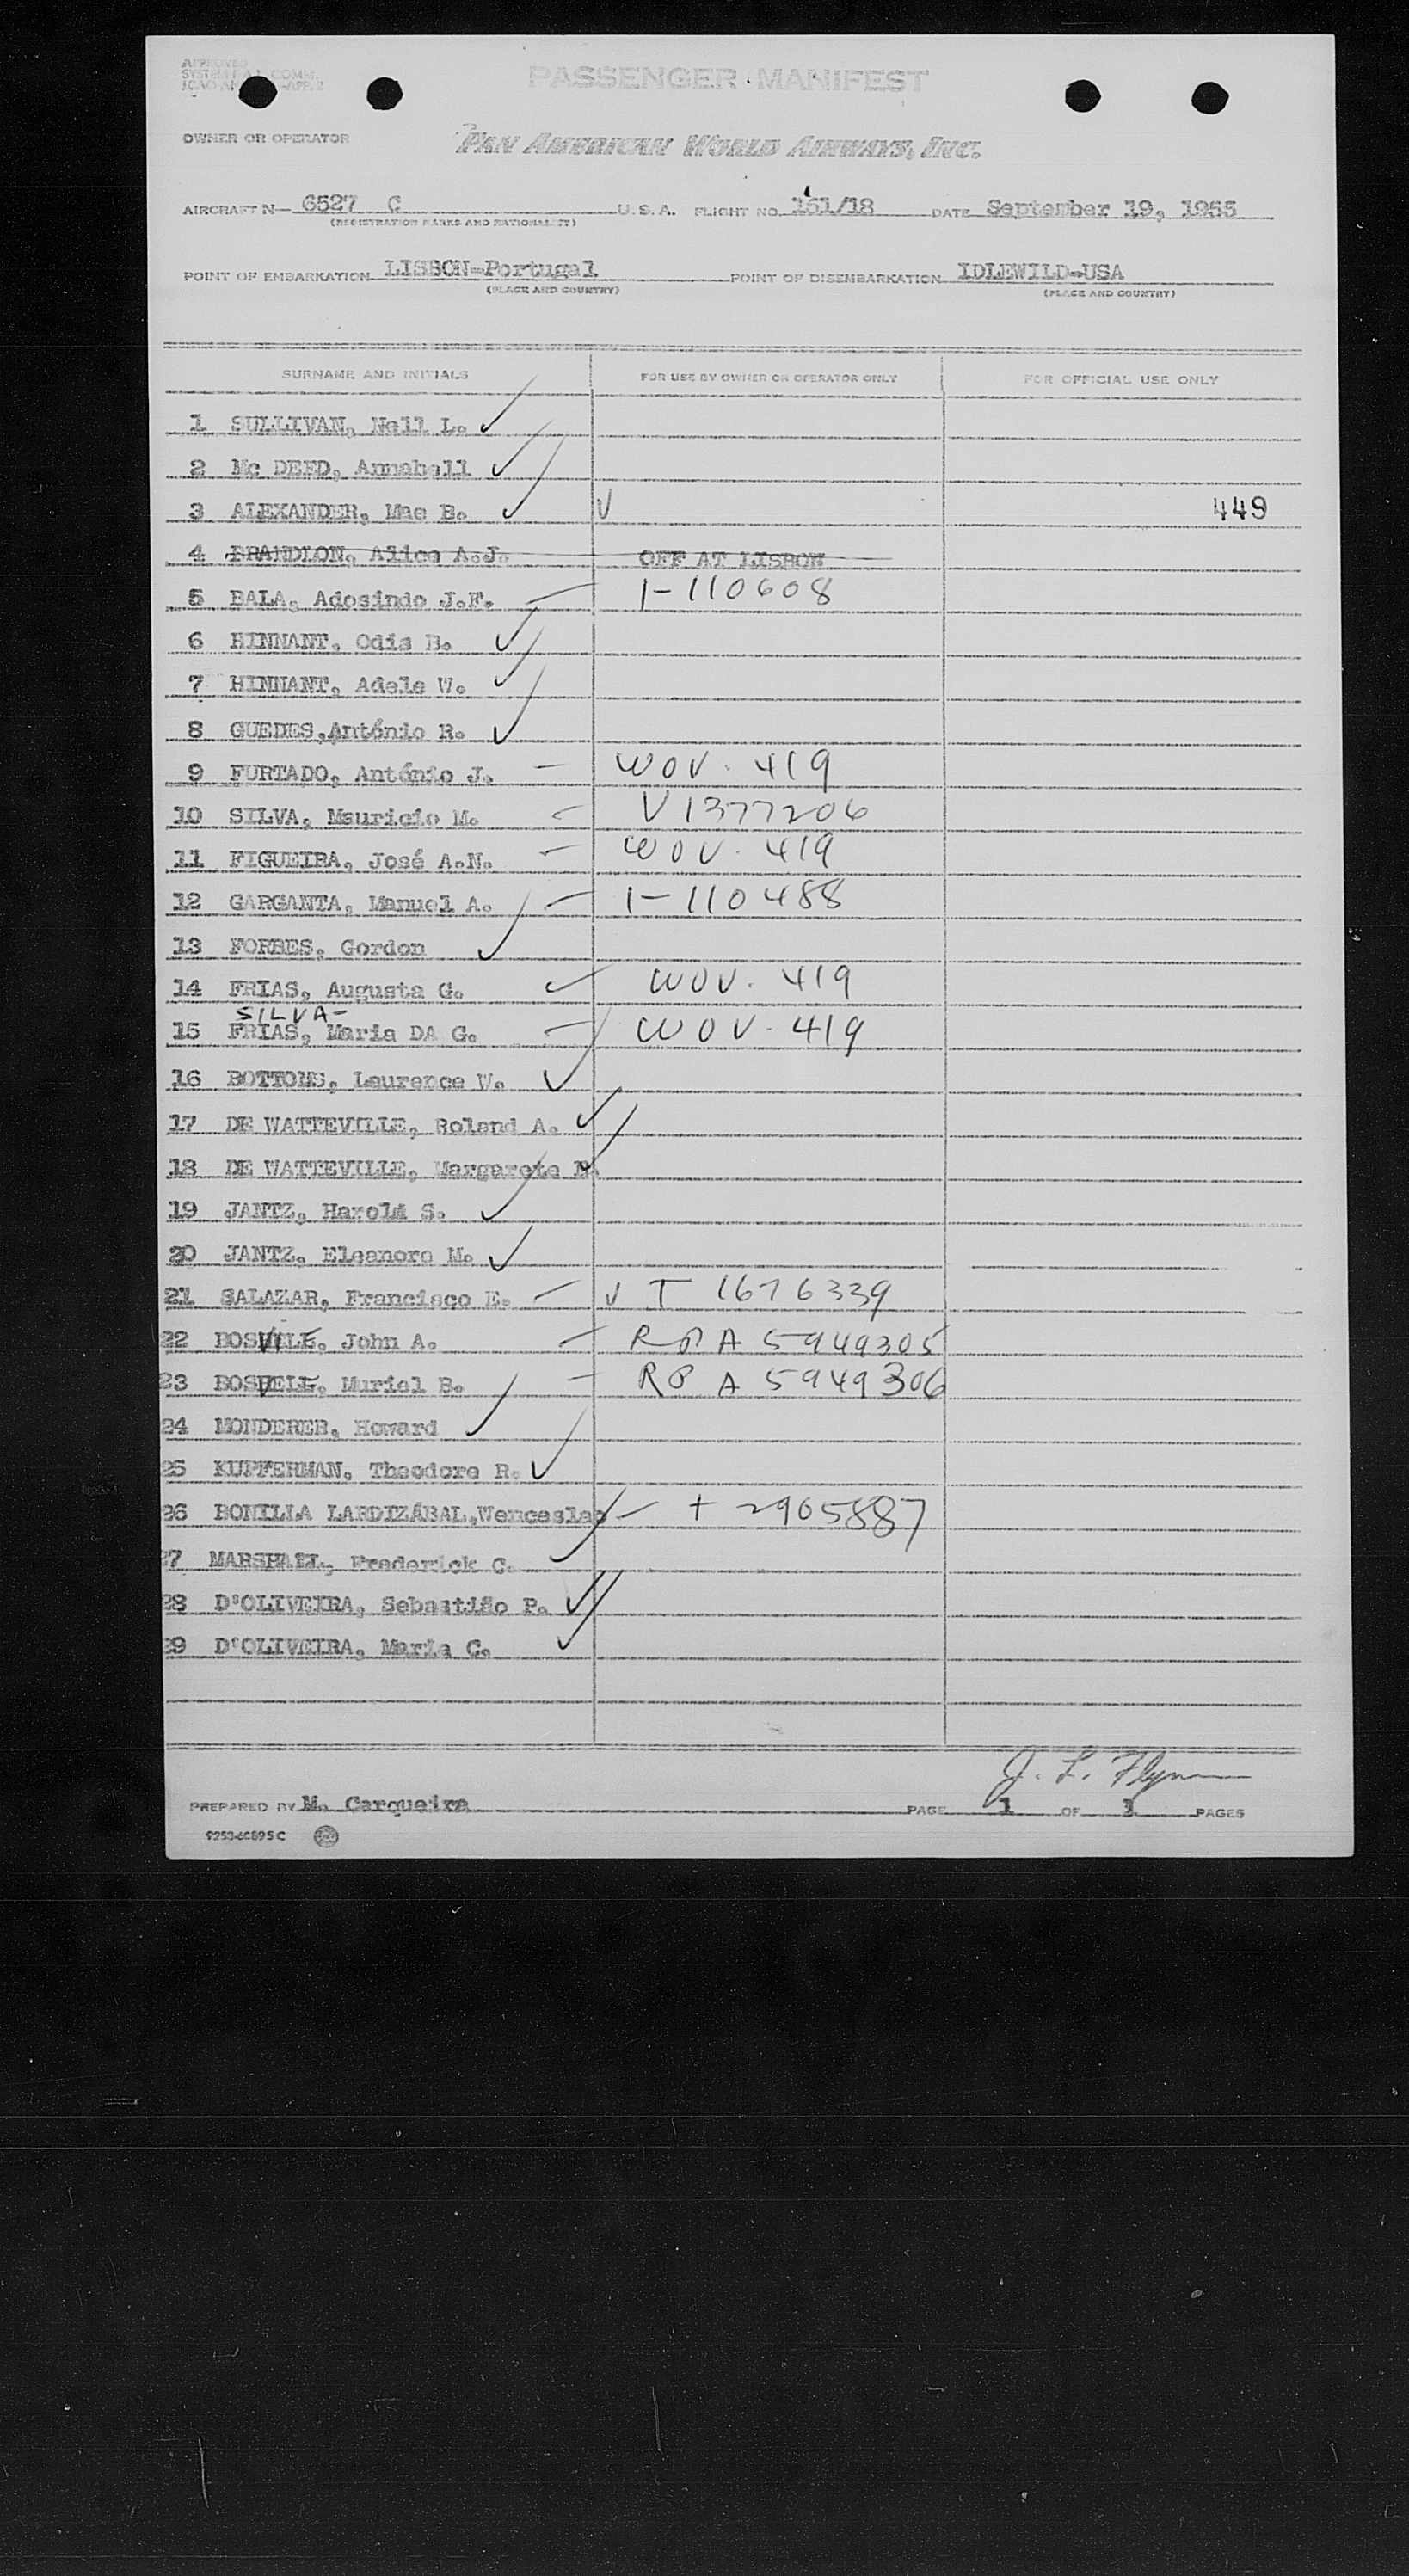 APPROVED
SYSTEM COMM.
PASSENGER MANIFEST
OWNER OR OPERATOR PAN AMERICAN WORLD AIRWAYS, INC.
AIRCRAFT N— 6527 C U.S.A. FLIGHT NO. 161/18 DATE September 19, 1955
(REGISTRATION MARKS AND NATIONALITY)
POINT OF EMBARKATION LISBON-Portugal POINT OF DISEMBARKATION IDLEWILD-USA
(PLACE AND COUNTRY) (PLACE AND COUNTRY)
SURNAME AND INITIALS FOR USE BY OWNER OR OPERATOR ONLY FOR OFFICIAL USE ONLY
1 SULLIVAN, Nell L. ✓
2 Mc DEED, Annabell ✓
3 ALEXANDER, Mae B. ✓ ✓ 449
4 BRANDLON, Alice A.J. OFF AT LISBON
5 BALA, Adosindo J.F. — 1-110608
6 HINNANT, Odis B. ✓
7 HINNANT, Adele W. ✓
8 GUEDES,António R. ✓
9 FURTADO, António J. — WOV. 419
10 SILVA, Mauricio M. — V1377206
11 FIGUEIRA, José A.N. — WOV. 419
12 GARGANTA, Manuel A. — 1-110488
13 FORBES, Gordon ✓
14 FRIAS, Augusta G. — WOV. 419
SILVA-
15 FRIAS, Maria DA G. — WOV. 419
16 BOTTOMS, Laurence W. ✓
17 DE WATTEVILLE, Roland A. ✓
18 DE WATTEVILLE, Margarete ✓
19 JANTZ, Harold S. ✓
20 JANTZ, Eleanore M. ✓
21 SALAZAR, Francisco E. — ✓ T 1676339
22 John A. — RP A 5949305
23 Muriel B. — RP A 5949306
24 MONDERER, Howard ✓
25 KUPFERMAN, Theodore R. ✓
26 BONILLA LARDIZÁBAL,Wenceslao — + 2905887
27 MARSHALL, Frederick C. ✓
28 D'OLIVEIRA, Sebastião P. ✓
29 D'OLIVEIRA, Maria C. ✓
J. L. Flynn
PREPARED BY M. Carqueira PAGE 1 OF 1 PAGES
9253-6C895C